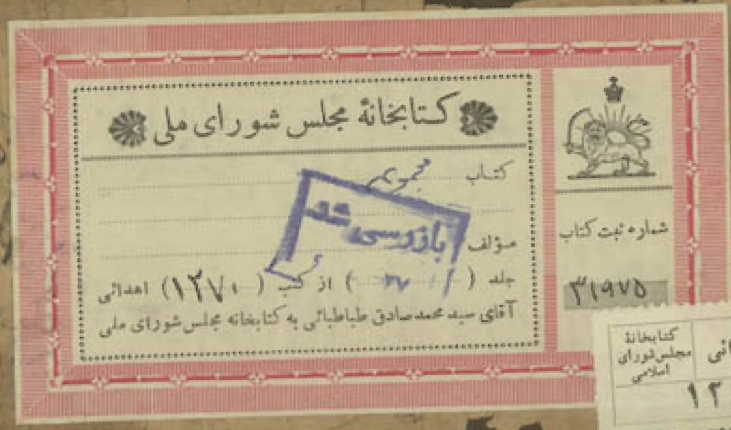 کتابخانهٔ مجلس شورای ملی
کتاب مجموعه
بازرسی شد
مؤلف
جلد ( ) از کتب ( ۱۲۷۰ ) اهدائی
آقای سید محمد صادق طباطبائی به کتابخانه مجلس شورای ملی
شماره ثبت کتاب
۳۱۹۷۵
کتابخانهٔ
مجلس شورای
اسلامی
۱۲